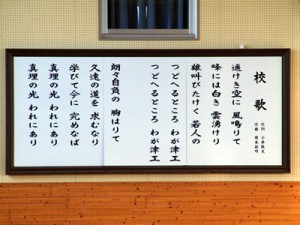 校歌
遙けき空に 風鳴りて
峰には白き 雲湧けり
雄叫びたけく 若人の
つどへるところ わが津工
つどへるところ わが津工
朗々自負の 胸はりて
久遠の道を 求むなり
学びて今に 究めなば
真理の光 われにあり
真理の光 われにあり